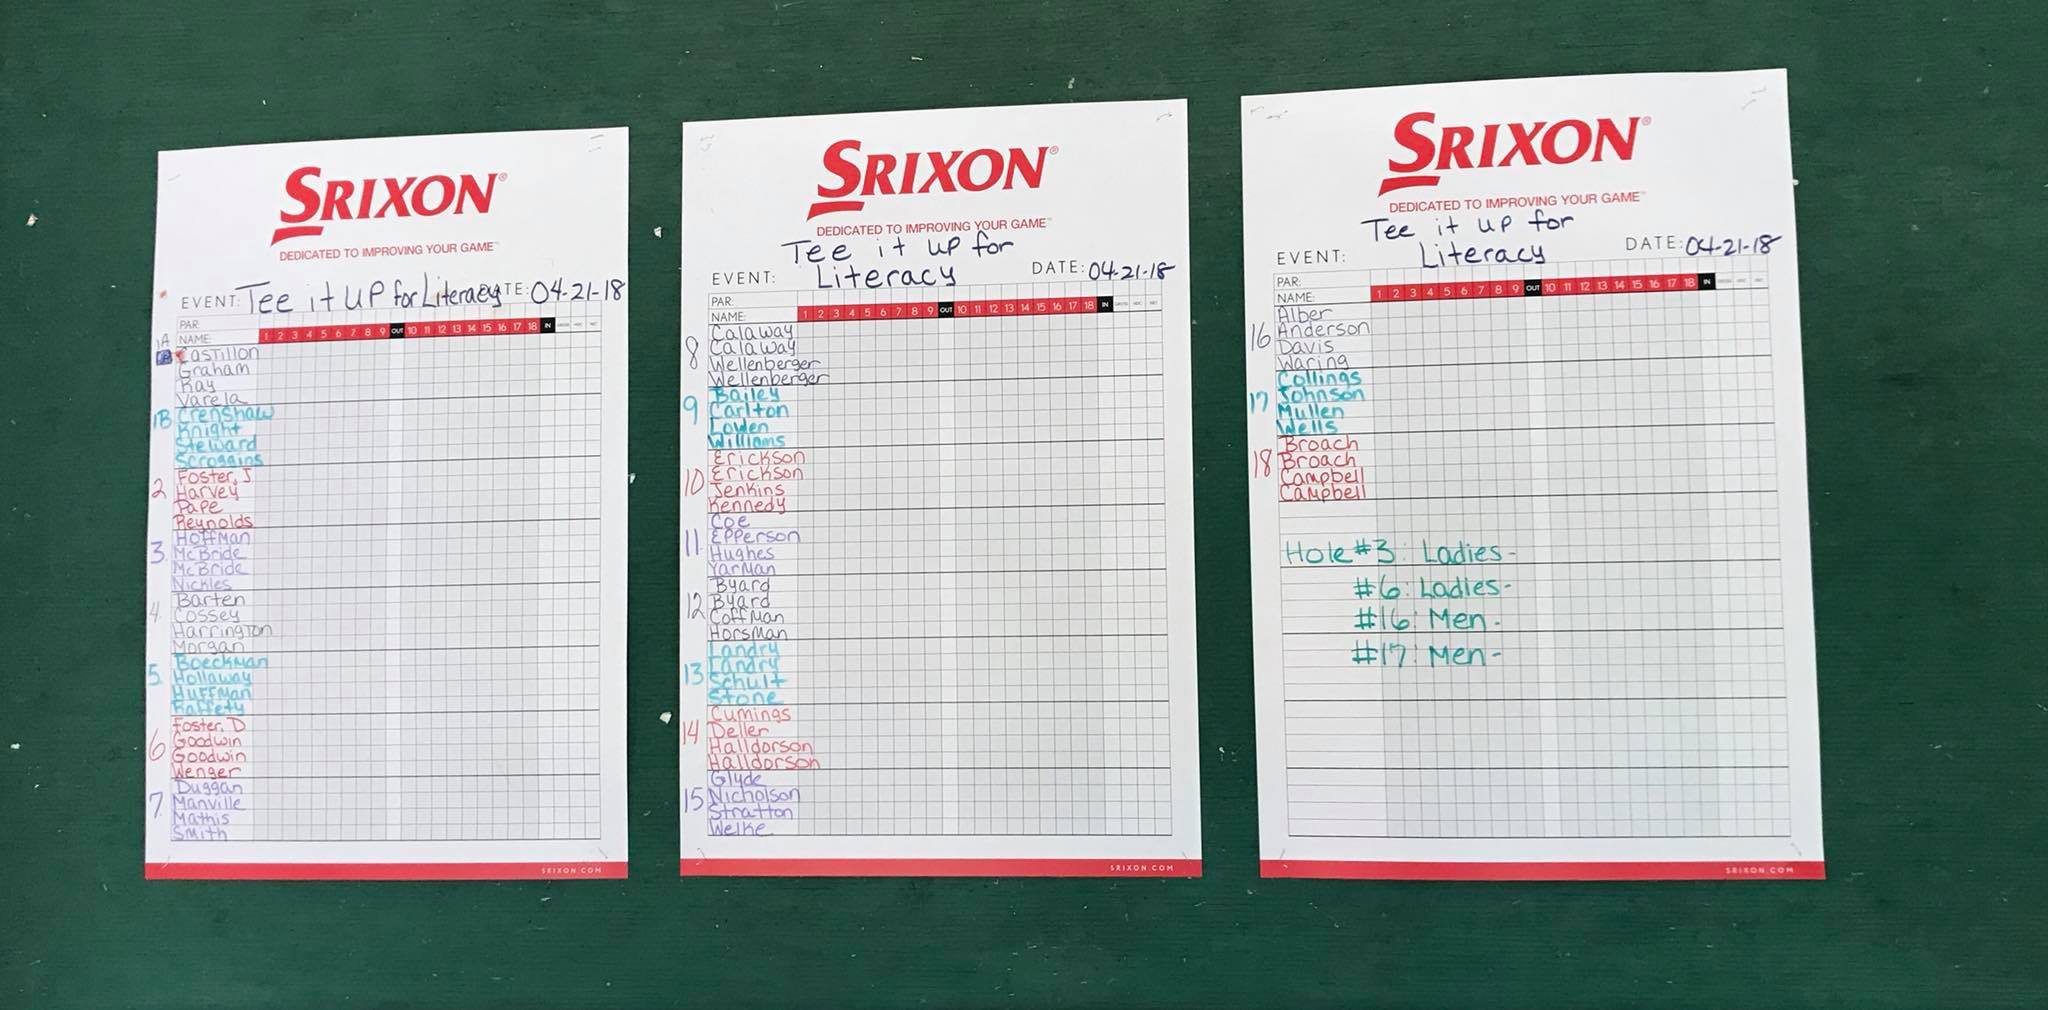 SRIXON®
DEDICATED TO IMPROVING YOUR GAME™
EVENT: Tee it up for Literacy DATE: 04-21-18
PAR:
1A NAME: 1 2 3 4 5 6 7 8 9 OUT 10 11 12 13 14 15 16 17 18 IN
Castillon
Graham
Ray
Varela
1B Crenshaw
Knight
Steward
Scroggins
Foster, J
2 Harvey
Pape
Reynolds
Hoffman
3. McBride
McBride
Nickles
Barten
4. Cossey
Harrington
Morgan
Boeckman
5. Hollaway
Huffman
Raffety
Foster, D
6 Goodwin
Goodwin
Wenger
Duggan
7. Manville
Mathis
Smith
SRIXON.COM
SRIXON®
DEDICATED TO IMPROVING YOUR GAME™
Tee it up for
EVENT: Literacy DATE: 04-21-18
PAR:
NAME: 1 2 3 4 5 6 7 8 9 OUT 10 11 12 13 14 15 16 17 18 IN
Calaway
8 Calaway
Wellenberger
Wellenberger
Bailey
9 Carlton
Lowen
Williams
Erickson
10 Erickson
Jenkins
Kennedy
Coe
11 Epperson
Hughes
Yarman
Byard
12 Byard
Coffman
Horsman
Landry
13 Landry
Schult
Stone
Cumings
14 Deller
Halldorson
Halldorson
Glyde
15 Nicholson
Stratton
Welke
SRIXON.COM
SRIXON®
DEDICATED TO IMPROVING YOUR GAME™
Tee it up for
EVENT: Literacy DATE: 04-21-18
PAR:
NAME: 1 2 3 4 5 6 7 8 9 OUT 10 11 12 13 14 15 16 17 18 IN
Alber
16 Anderson
Davis
Waring
Collings
17 Johnson
Mullen
Wells
Broach
18 Broach
Campbell
Campbell
Hole #3: Ladies-
#6: Ladies-
#16: Men-
#17: Men-
SRIXON.COM